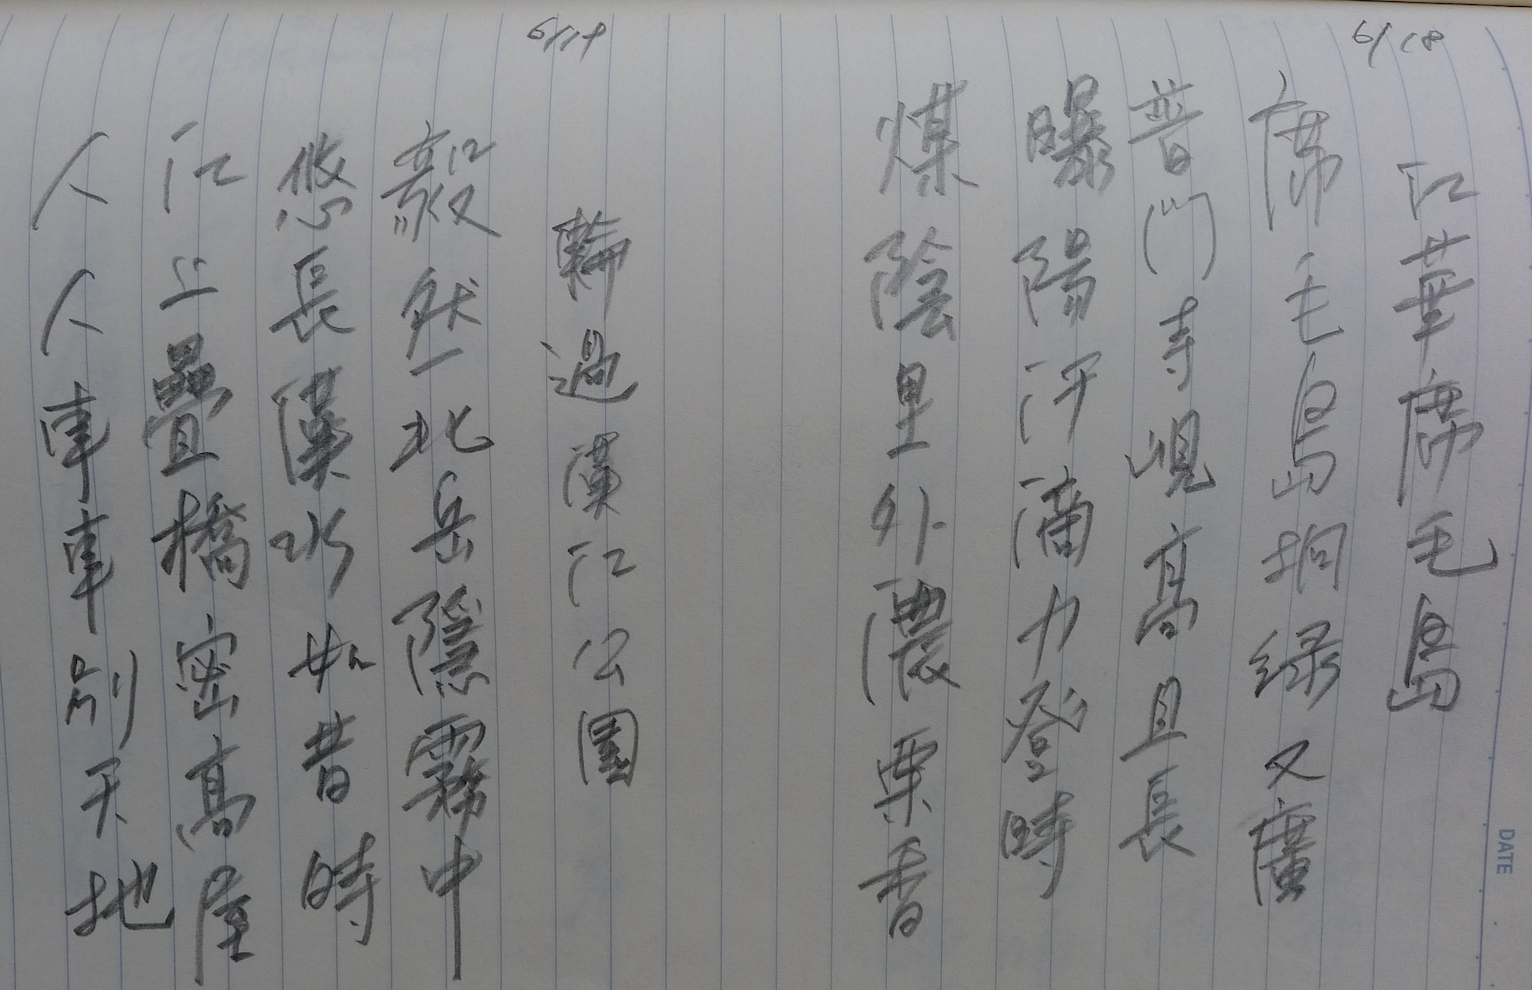 6/18
江華席毛島
席毛島坰綠又廣
普門寺峴高且長
曝陽汗滴力登時
煤陰里外濃栗香
6/19
輪過漢江公園
毅然北岳隱霧中
悠長漢水如昔時
江上疊橋密高座
人人車車別天地
DATE